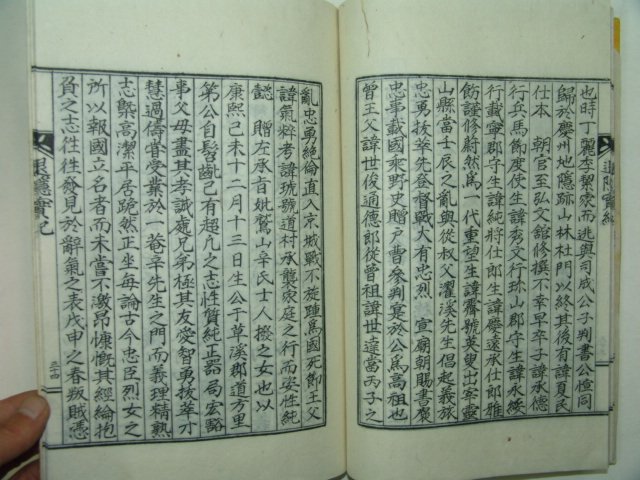 也時丁麗季絜家而逃與司成公子判書公愷同
歸於慶州地隱跡山林杜門以終其後有諱夏民
仕本 朝官至弘文館修撰不幸早卒子諱承德
行兵馬節度使生諱秀文行珎山郡守生諱永緩
行載寧郡守生諱純將仕郎生諱慶遠承仕郎雅
飭謹修蔚然爲一代重望生諱齋號菊英出宰靈
山縣當壬辰之亂與從叔父濯溪先生倡起義旅
忠勇拔萃先登督戰大有忠烈 宣廟朝賜書褒
忠事載國乘野史贈戶曹參判寔於公爲高祖也
曾王父諱世俊通德郎從曾祖諱世達當丙子之
亂忠勇絶倫直入京城戰不旋踵爲國死節王父
諱氣粹考諱琥號道村承襲家庭之行而姿性純
懿 贈左承旨妣鷲山辛氏士人撥之女也以
康熙己未十二月十三日生公于草溪郡道方里
第公自髫齔已有超凡之志性質純正器局宏豁
事父母盡其孝誠處兄弟極其友愛智勇拔萃才
慧過儕嘗受業於一菴辛先生之門而義理精熟
志槩高潔平居跪然正坐每論古今忠臣烈女之
所以報國立名者而未嘗不激昂慷慨其經綸抱
負之志往往發見於辭氣之表戊申之春叛賊憑
隱實紀
三十四